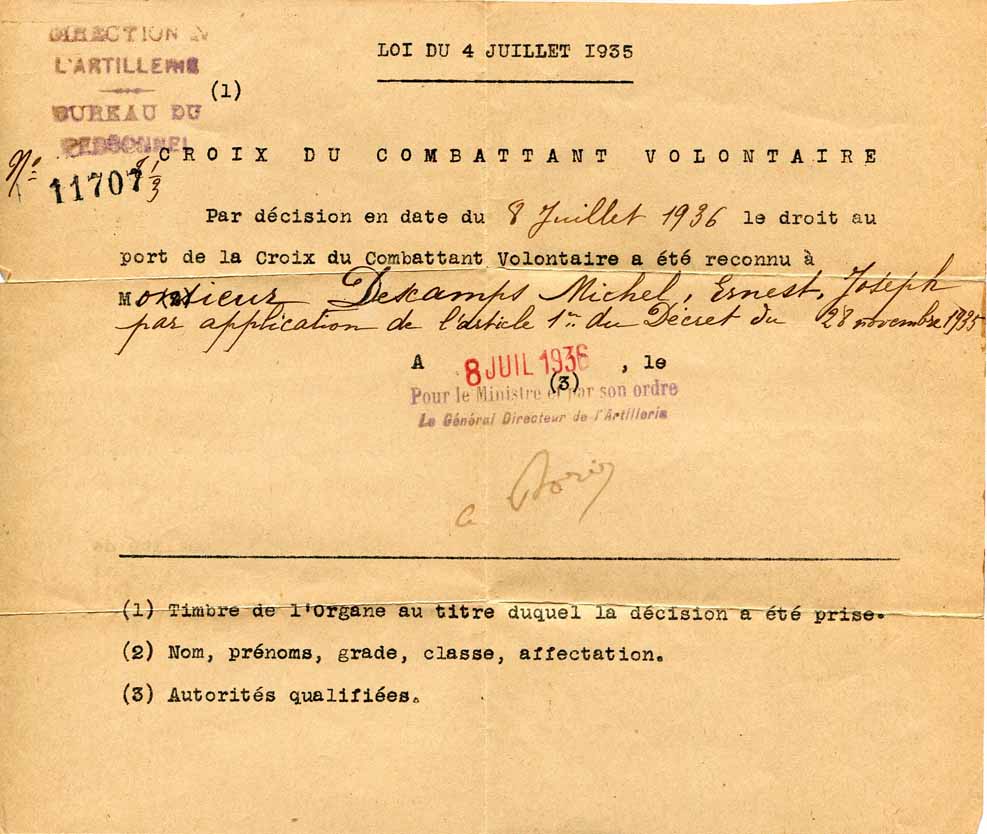 DIRECTION DE
L'ARTILLERIE
(1)
BUREAU DU
PERSONNEL
LOI DU 4 JUILLET 1935
CROIX DU COMBATTANT VOLONTAIRE
No 11707 1/3
Par décision en date du 8 Juillet 1936 le droit au
port de la Croix du Combattant Volontaire a été reconnu à
Monsieur Descamps Michel, Ernest, Joseph
par application de l'article 1er du Décret du 28 novembre 1935
A 8 JUIL 1936, le
(3)
Pour le Ministre et par son ordre
Le Général Directeur de l'Artillerie
(1) Timbre de l'Organe au titre duquel la décision a été prise.
(2) Nom, prénoms, grade, classe, affectation.
(3) Autorités qualifiées.